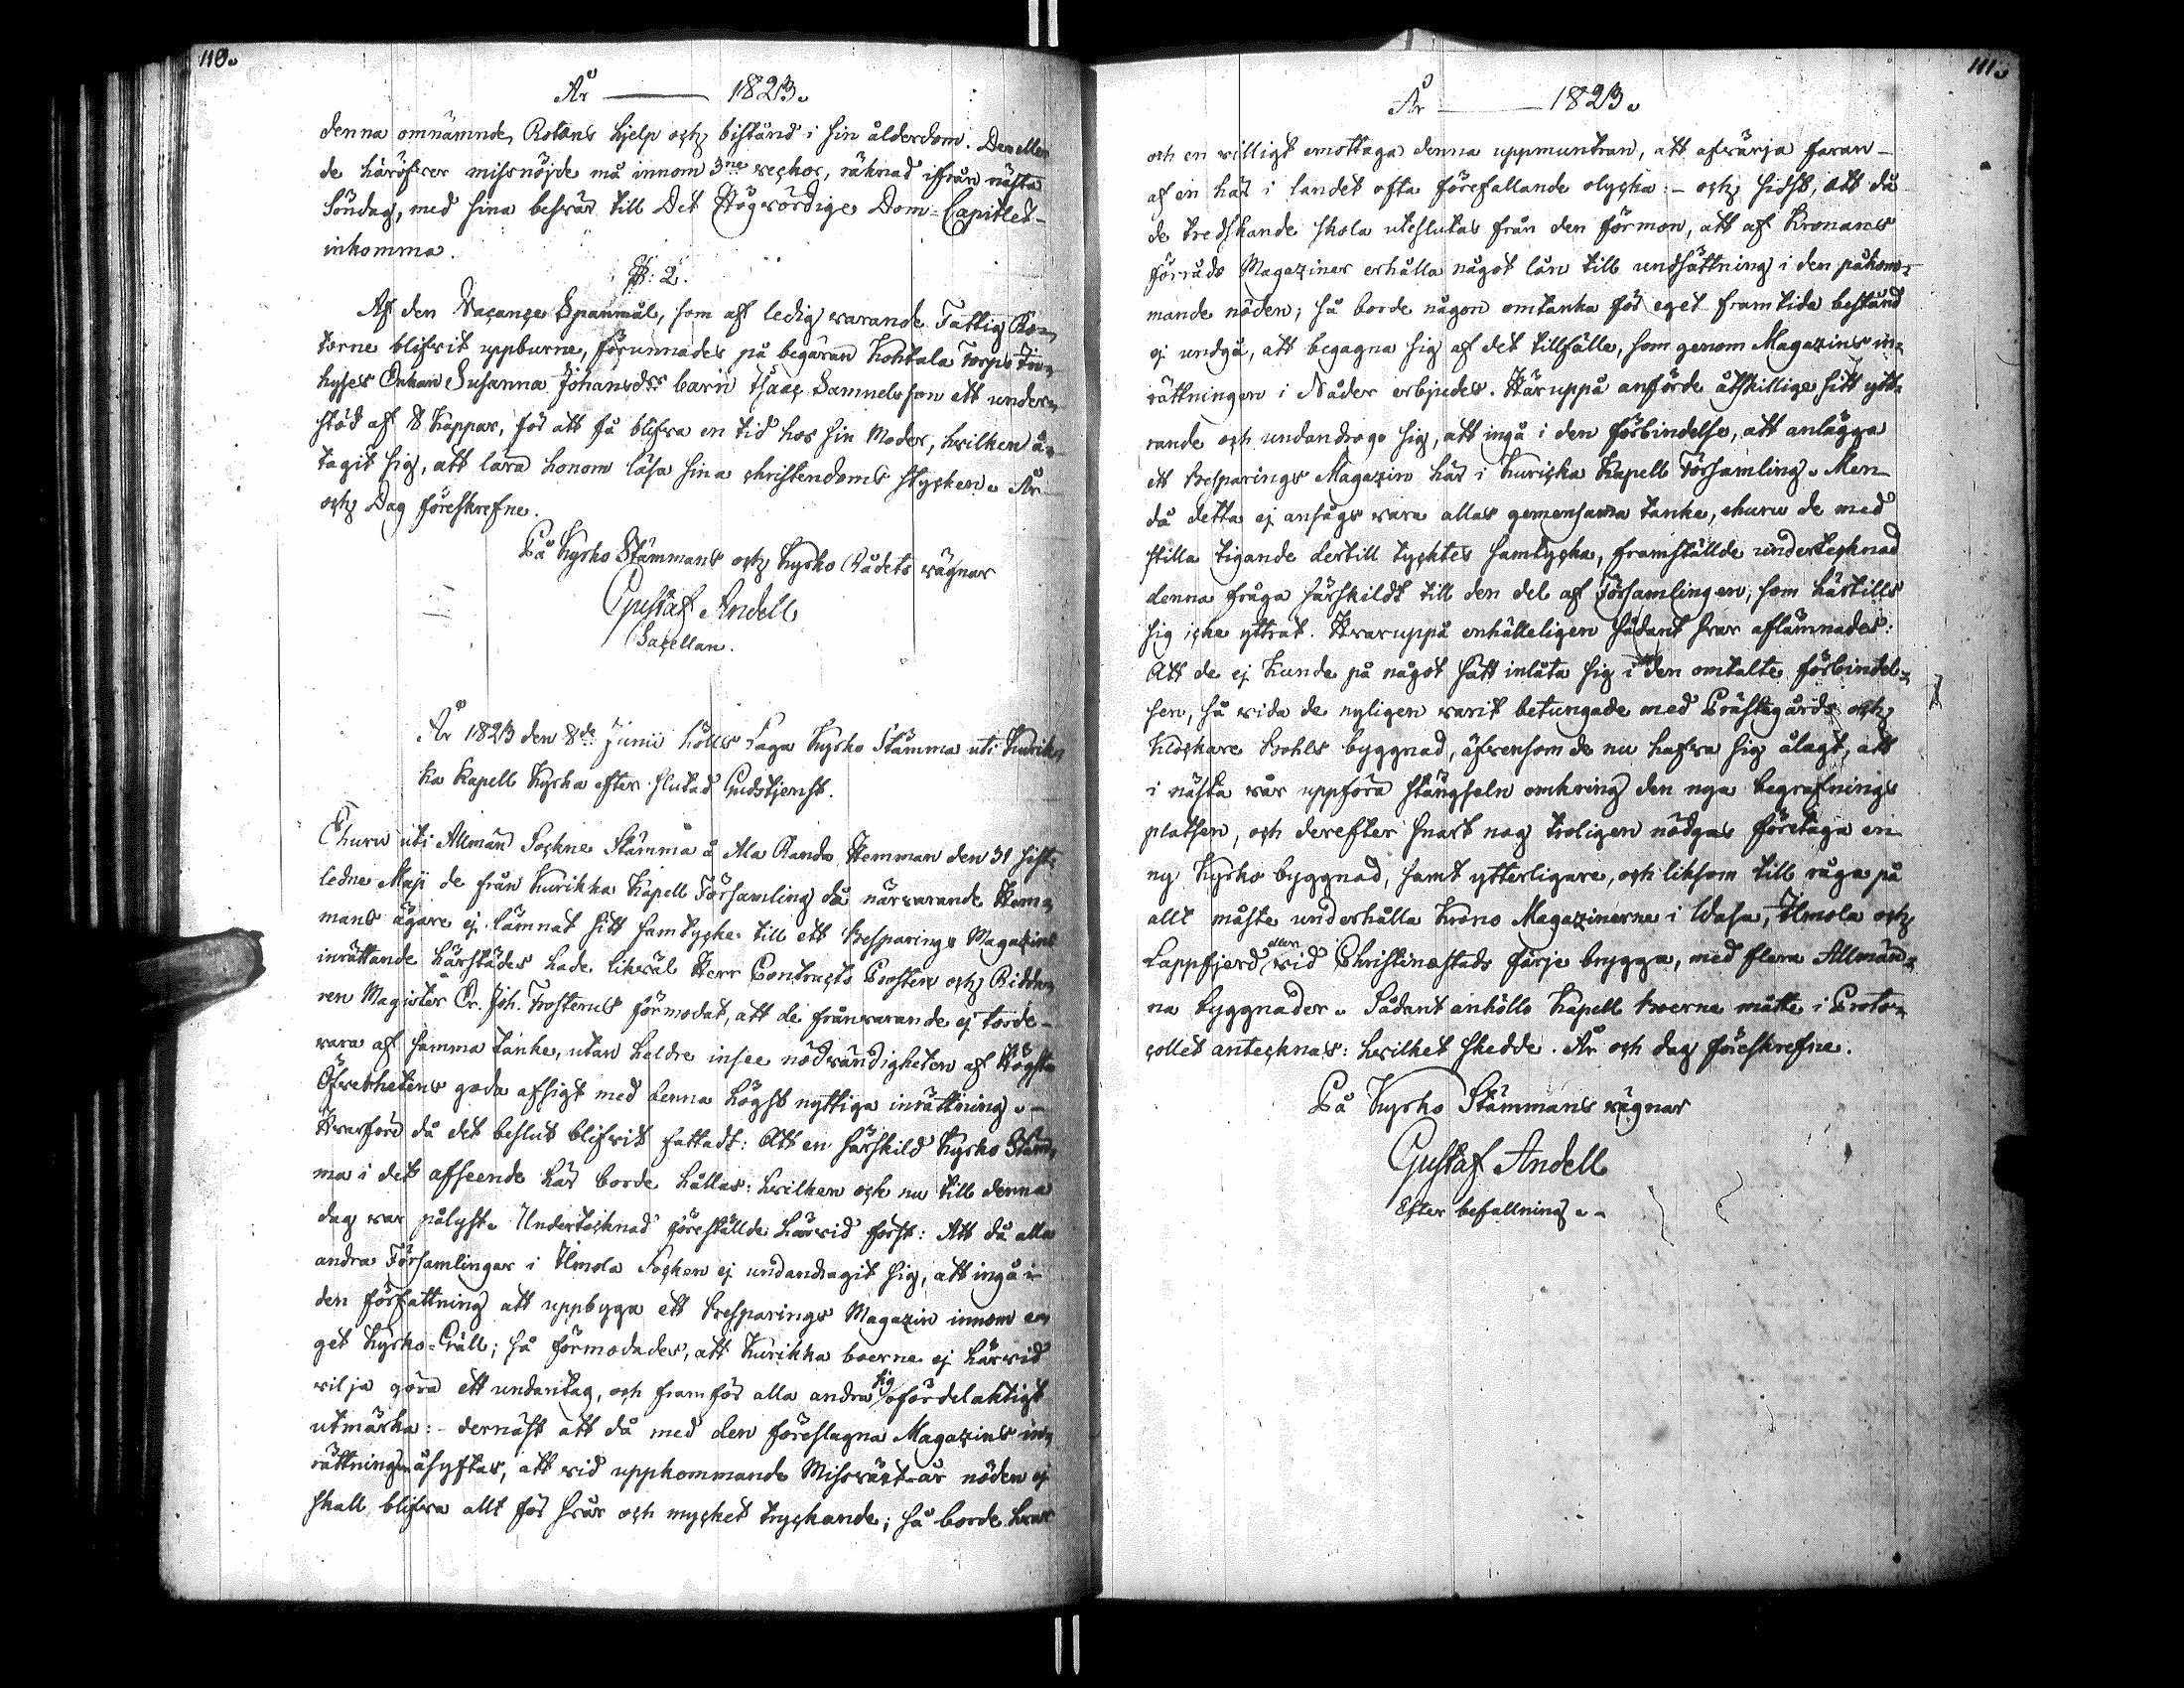 110.
År ——— 1823.
denna omnämnde, Rotans hjelp och bistånd i sin ålderdom. Den eller
de häröfver missnöjde må innom 3ne veckor, räknad ifrån nästa
Söndag, med sina besvär till Det Högvördige Dom-Capitlet
inkomma.
§: 2.
Af den Vacance Spanmål, som af ledig varande Fattig Ro-
torne blifvit uppburne, förunnades på begäran Kohtala Torps In-
hyses Enkan Susanna Johansdrs barn Isaac Samuelsson ett under-
stöd af 8 Kappar, för att få blifva en tid hos sin Moder, hvilken å-
tagit sig, att lära honom läsa sina christendoms stycken. År
och Dag föreskrefne.
På Kyrko Stämmans och Kyrko Rådets vägnar
Gustaf Andell
Sacellan.
År 1823 den 8de Junii hölls Laga Kyrko Stämma uti Kurik-
ka Kapell Kyrka efter slutad Gudstjenst.
Ehuru uti Allmän Sockne Stämma å Ala Randa Hemman den 31 sist-
ledne Maji de från Kurikka Kapell Församling då närvarande Hem-
mans ägare ej lämnat sitt samtycke till ett Besparings Magazins
inrättande härstädes hade likväl Herr Contracts Prosten och Ridda-
ren Magister Er. Joh. Frosterus förmodat, att de frånvarande ej torde
vara af samma tanke, utan heldre insee nödvändigheten af Högsta
Öfverhetens goda afsigt med denna högst nyttiga inrättning. -
Hvarföre då det beslut blifvit fattadt: Att en särskild Kyrko Stäm-
ma i det afseende här borde hållas: hvilken ock nu till denna
dag var pålyst. Undertecknad föreställde härvid först: Att då alla
andra Församlingar i Ilmola Socken ej undandragit sig, att ingå i
den författning att uppbygga ett Besparings Magazin innom e-
get Kyrko-Gräll; så förmodades, att Kurikka boerne ej härvid
vilja göra ett undantag, och framför alla andra sig ofördelaktigt
utmärka: - dernäst att då med den föreslagna Magazins in-
rättningen åsyftas, att vid uppkommande Missväxt-år nöden ej
skall blifva allt för svår och mycket tryckande; så borde hvar
111.
År ——— 1823.
och en villigt emottaga denna uppmuntran, att afvärja faran
af en här i landet ofta förefallande olycka: - och sidst, att då
de tredskande skola uteslutas från den förmon, att af Kronans
förråds Magaziner erhålla något lån till undsättning i den påkom-
mande nöden; så borde någon omtanka för eget framtida bestånd
ej undgå, att begagna sig af det tillfälle, som genom Magazins in-
rättningen i Nåder erbjudes. Häruppå anförde åtskillige sitt ytt-
rande och undandrogo sig, att ingå i den förbindelse, att anlägga
ett Besparings Magazin här i Kuricka Kapell Församling. Men
då detta ej ansågs vara allas gemensamma tanke, ehuru de med
stilla tigande dertill tycktes samtycka, framställde undertecknad
denna fråga särskildt till den del af Församlingen, som härtills
sig icke yttrat. Hvaruppå enhälleligen sådant svar aflämnades:
Att de ej kunde på något sätt inlåta sig i den omtalte förbindel-
sen, så vida de nyligen varit betungade med Prästegårds och
Klockare Bohls byggnad, äfvensom de nu hafva sig ålagt, att
i nästa vår uppföra stängseln omkring den nya begrafnings
platsen, och derefter snart nog troligen nödgas företaga en
ny Kyrko byggnad, samt ytterligare, och liksom till råga på
allt måste underhålla Krono Magazinerne i Wasa, Ilmola och
Lappfjerd eller vid Christinæstads färje brygga, med flera Allmän-
na byggnader. Sådant anhöllo Kapell boerne måtte i Proto-
collet antecknas: hvilket skedde. År och dag föreskrefne.
På Kyrko Stämmans vägnar
Gustaf Andell
Efter befallning. -